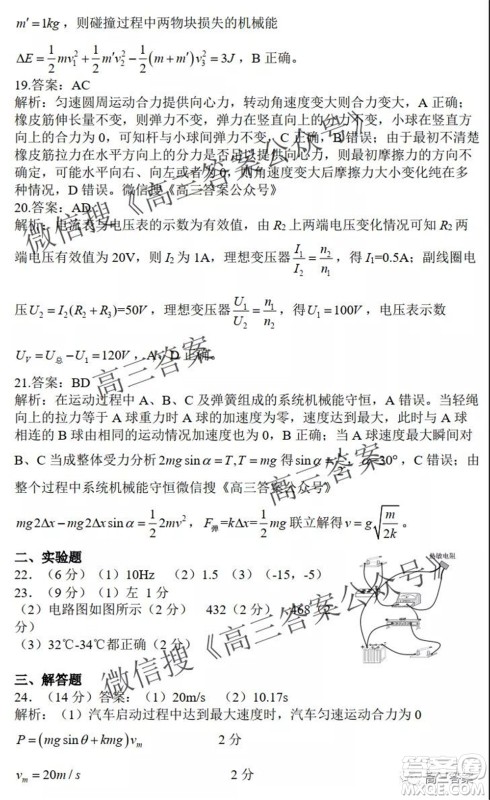 m′=1kg，则碰撞过程中两物块损失的机械能
ΔE=1/2 mv₁²+1/2 m′v₂²−1/2 (m+m′)v₃²=3J，B 正确。
19.答案：AC
解析：匀速圆周运动合力提供向心力，转动角速度变大则合力变大，A 正确；
橡皮筋伸长量不变，则弹力不变，弹力在竖直向上的分力不变，小球在竖直方
向上的合力为 0，可知杆与小球间弹力不变，C 正确，B 错误；由于最初不清楚
橡皮筋拉力在水平方向上的分力是否足够提供合力，则最初摩擦力的方向不
确定，可能水平向右、向左或者为 0，则角速度变大后摩擦力大小变化纯在多
种情况，D 错误。微信搜《高三答案公众号》
20.答案：AD
解析：电流表与电压表的示数为有效值，由 R₂ 上两端电压变化情况可知 R₂ 两
端电压有效值为 20V，则 I₂ 为 1A，理想变压器 I₁/I₂=n₂/n₁，得 I₁=0.5A；副线圈电
压U₂=I₂(R₂+R₃)=50V，理想变压器U₁/U₂=n₁/n₂，得U₁=100V，电压表示数
U_V=U_总−U₁=120V，A、D 正确。
21.答案：BD
解析：在运动过程中 A、B、C 及弹簧组成的系统机械能守恒，A 错误。当轻绳
向上的拉力等于 A 球重力时 A 球的加速度为零，速度达到最大，此时与 A 球
相连的 B 球由相同的运动情况加速度也为 0，B 正确；当 A 速度最大瞬间对
B、C 当成整体受力分析2mg sin α=T,T=mg 得sin α=，α=30°，C 错误；由
整个过程中系统机械能守恒微信搜《高三答案公众号》
mg2Δx−mg2Δx sin α=1/2 2mv²，F弹=kΔx=1/2 mg 联立解得v=g√(m/2k)。
二、实验题
22．（6 分）（1）10Hz （2）1.5 （3）(-15，-5)
23．（9 分）（1）左 1 分
（2）电路图如图所示（2 分） 432（2 分） 468（2
分）
（3）32℃-34℃都正确（2 分）
热敏电阻
三、解答题
24．（14 分）答案：（1）20m/s （2）10.17s
解析：（1）汽车启动过程中达到最大速度时，汽车匀速运动合力为 0
P=(mg sin θ+kmg)vₘ 2 分
vₘ=20m/s 2 分
微信搜《高三答案公众号》
高三答案
高三答案
微信搜《高三答案公众号》
高三答案